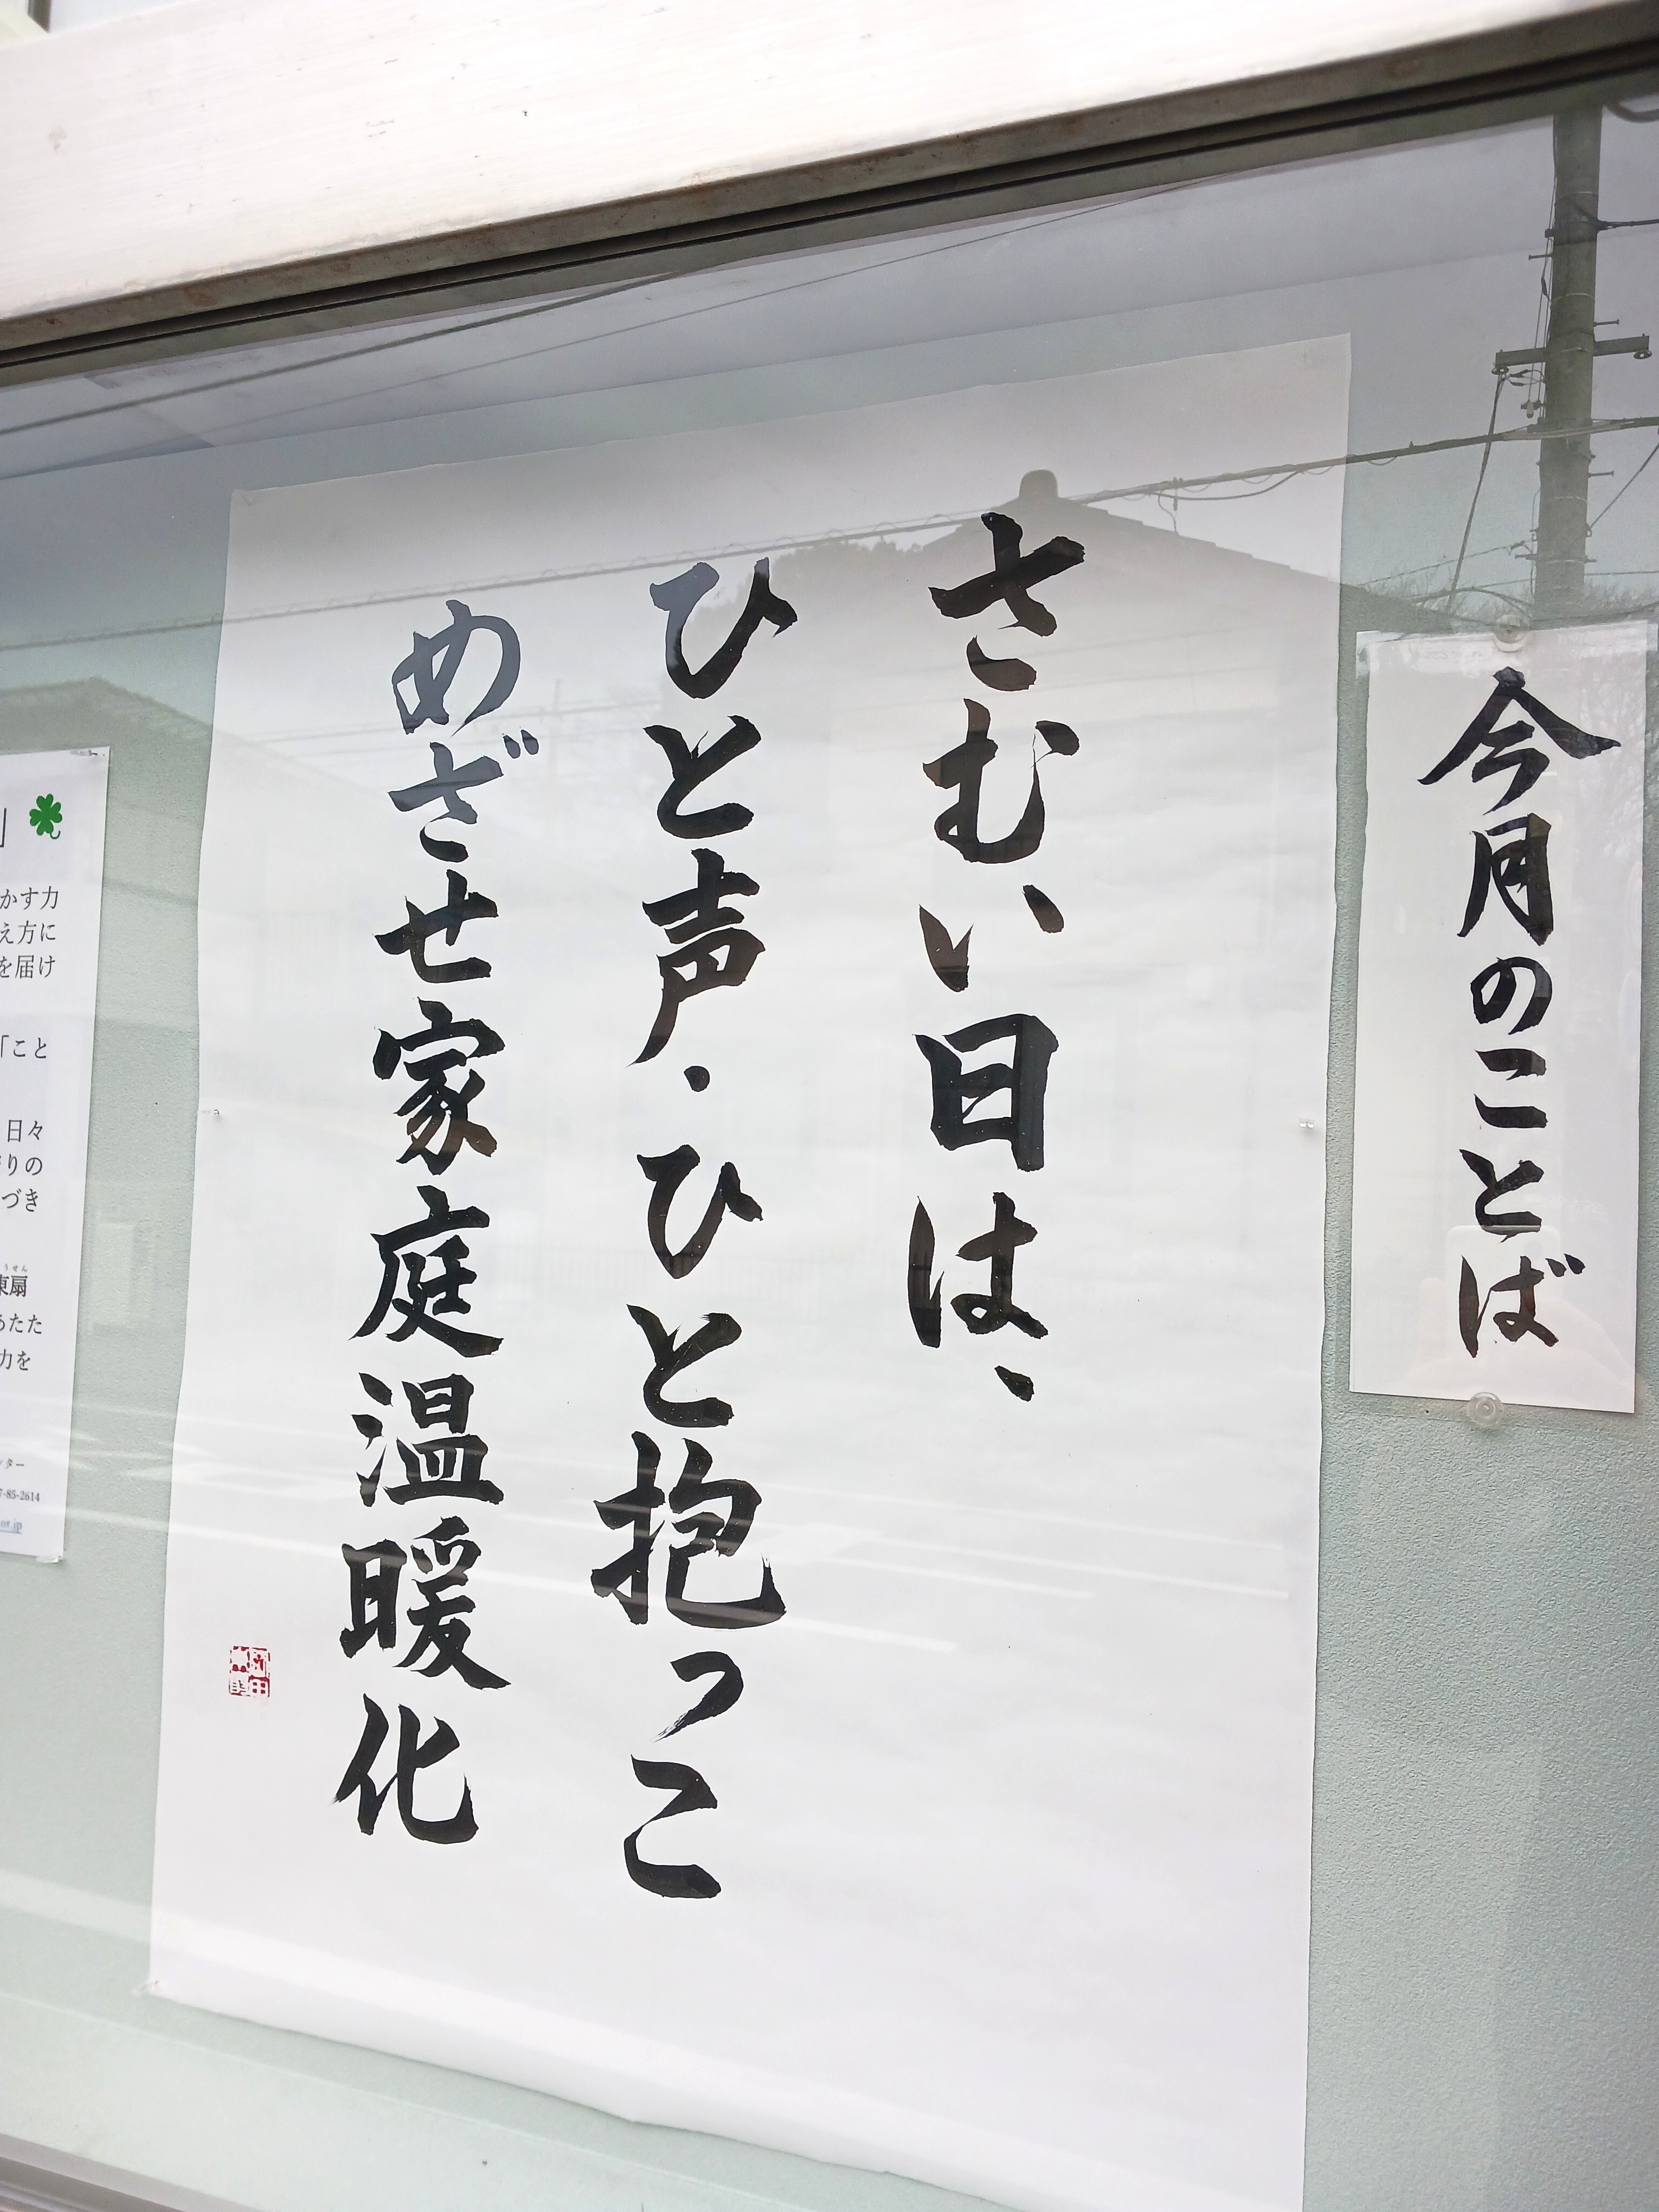 今月のことば
さむい日は、
ひと声・ひと抱っこ
めざせ家庭温暖化
かす力
え方に
を届け
「こと
日々
りの
づき
うせん
東扇
あたた
力を
ター
7-85-2614
or.jp